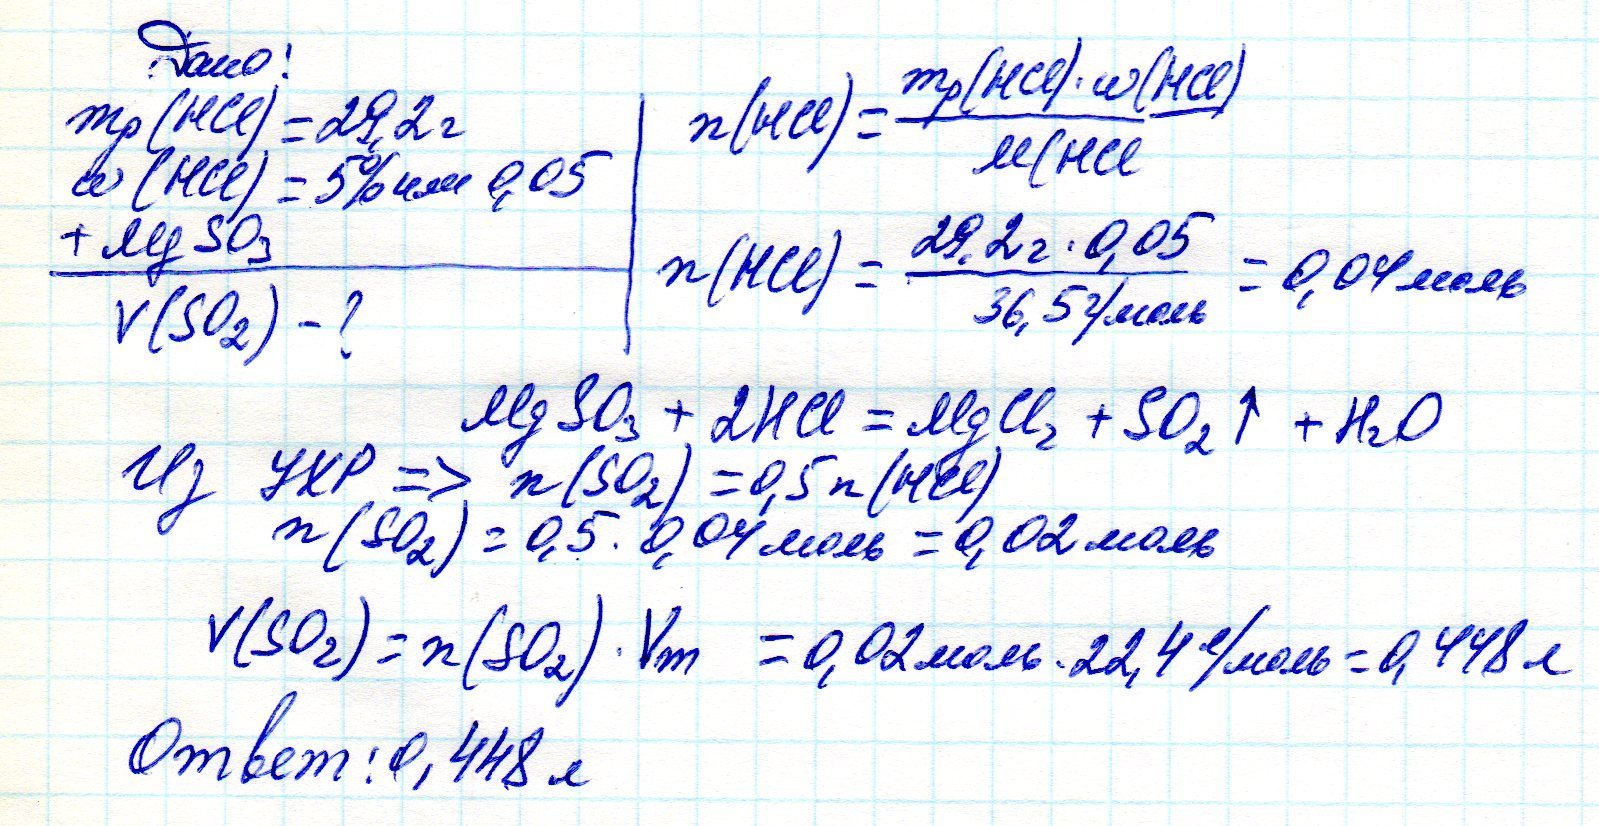 Дано:
mр(HCl) = 29,2г
ω(HCl) = 5% или 0,05
+ MgSO₃
V(SO₂) - ?
n(HCl) = mр(HCl)·ω(HCl)
M(HCl
n(HCl) = 29,2г · 0,05 = 0,04 моль
36,5г/моль
MgSO₃ + 2HCl = MgCl₂ + SO₂↑ + H₂O
Из УХР => n(SO₂) = 0,5n(HCl)
n(SO₂) = 0,5 · 0,04 моль = 0,02 моль
V(SO₂) = n(SO₂) · Vm = 0,02 моль · 22,4 л/моль = 0,448 л
Ответ: 0,448 л